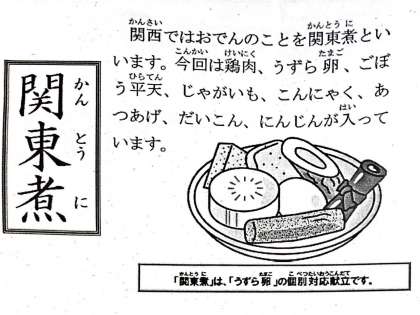 関西ではおでんのことを関東煮とい
います。今回は鶏肉、うずら卵、ごぼ
う平天、じゃがいも、こんにゃく、あ
つあげ、だいこん、にんじんが入って
います。
関東煮
かん とう に
「関東煮」は、「うずら卵」の個別対応献立です。